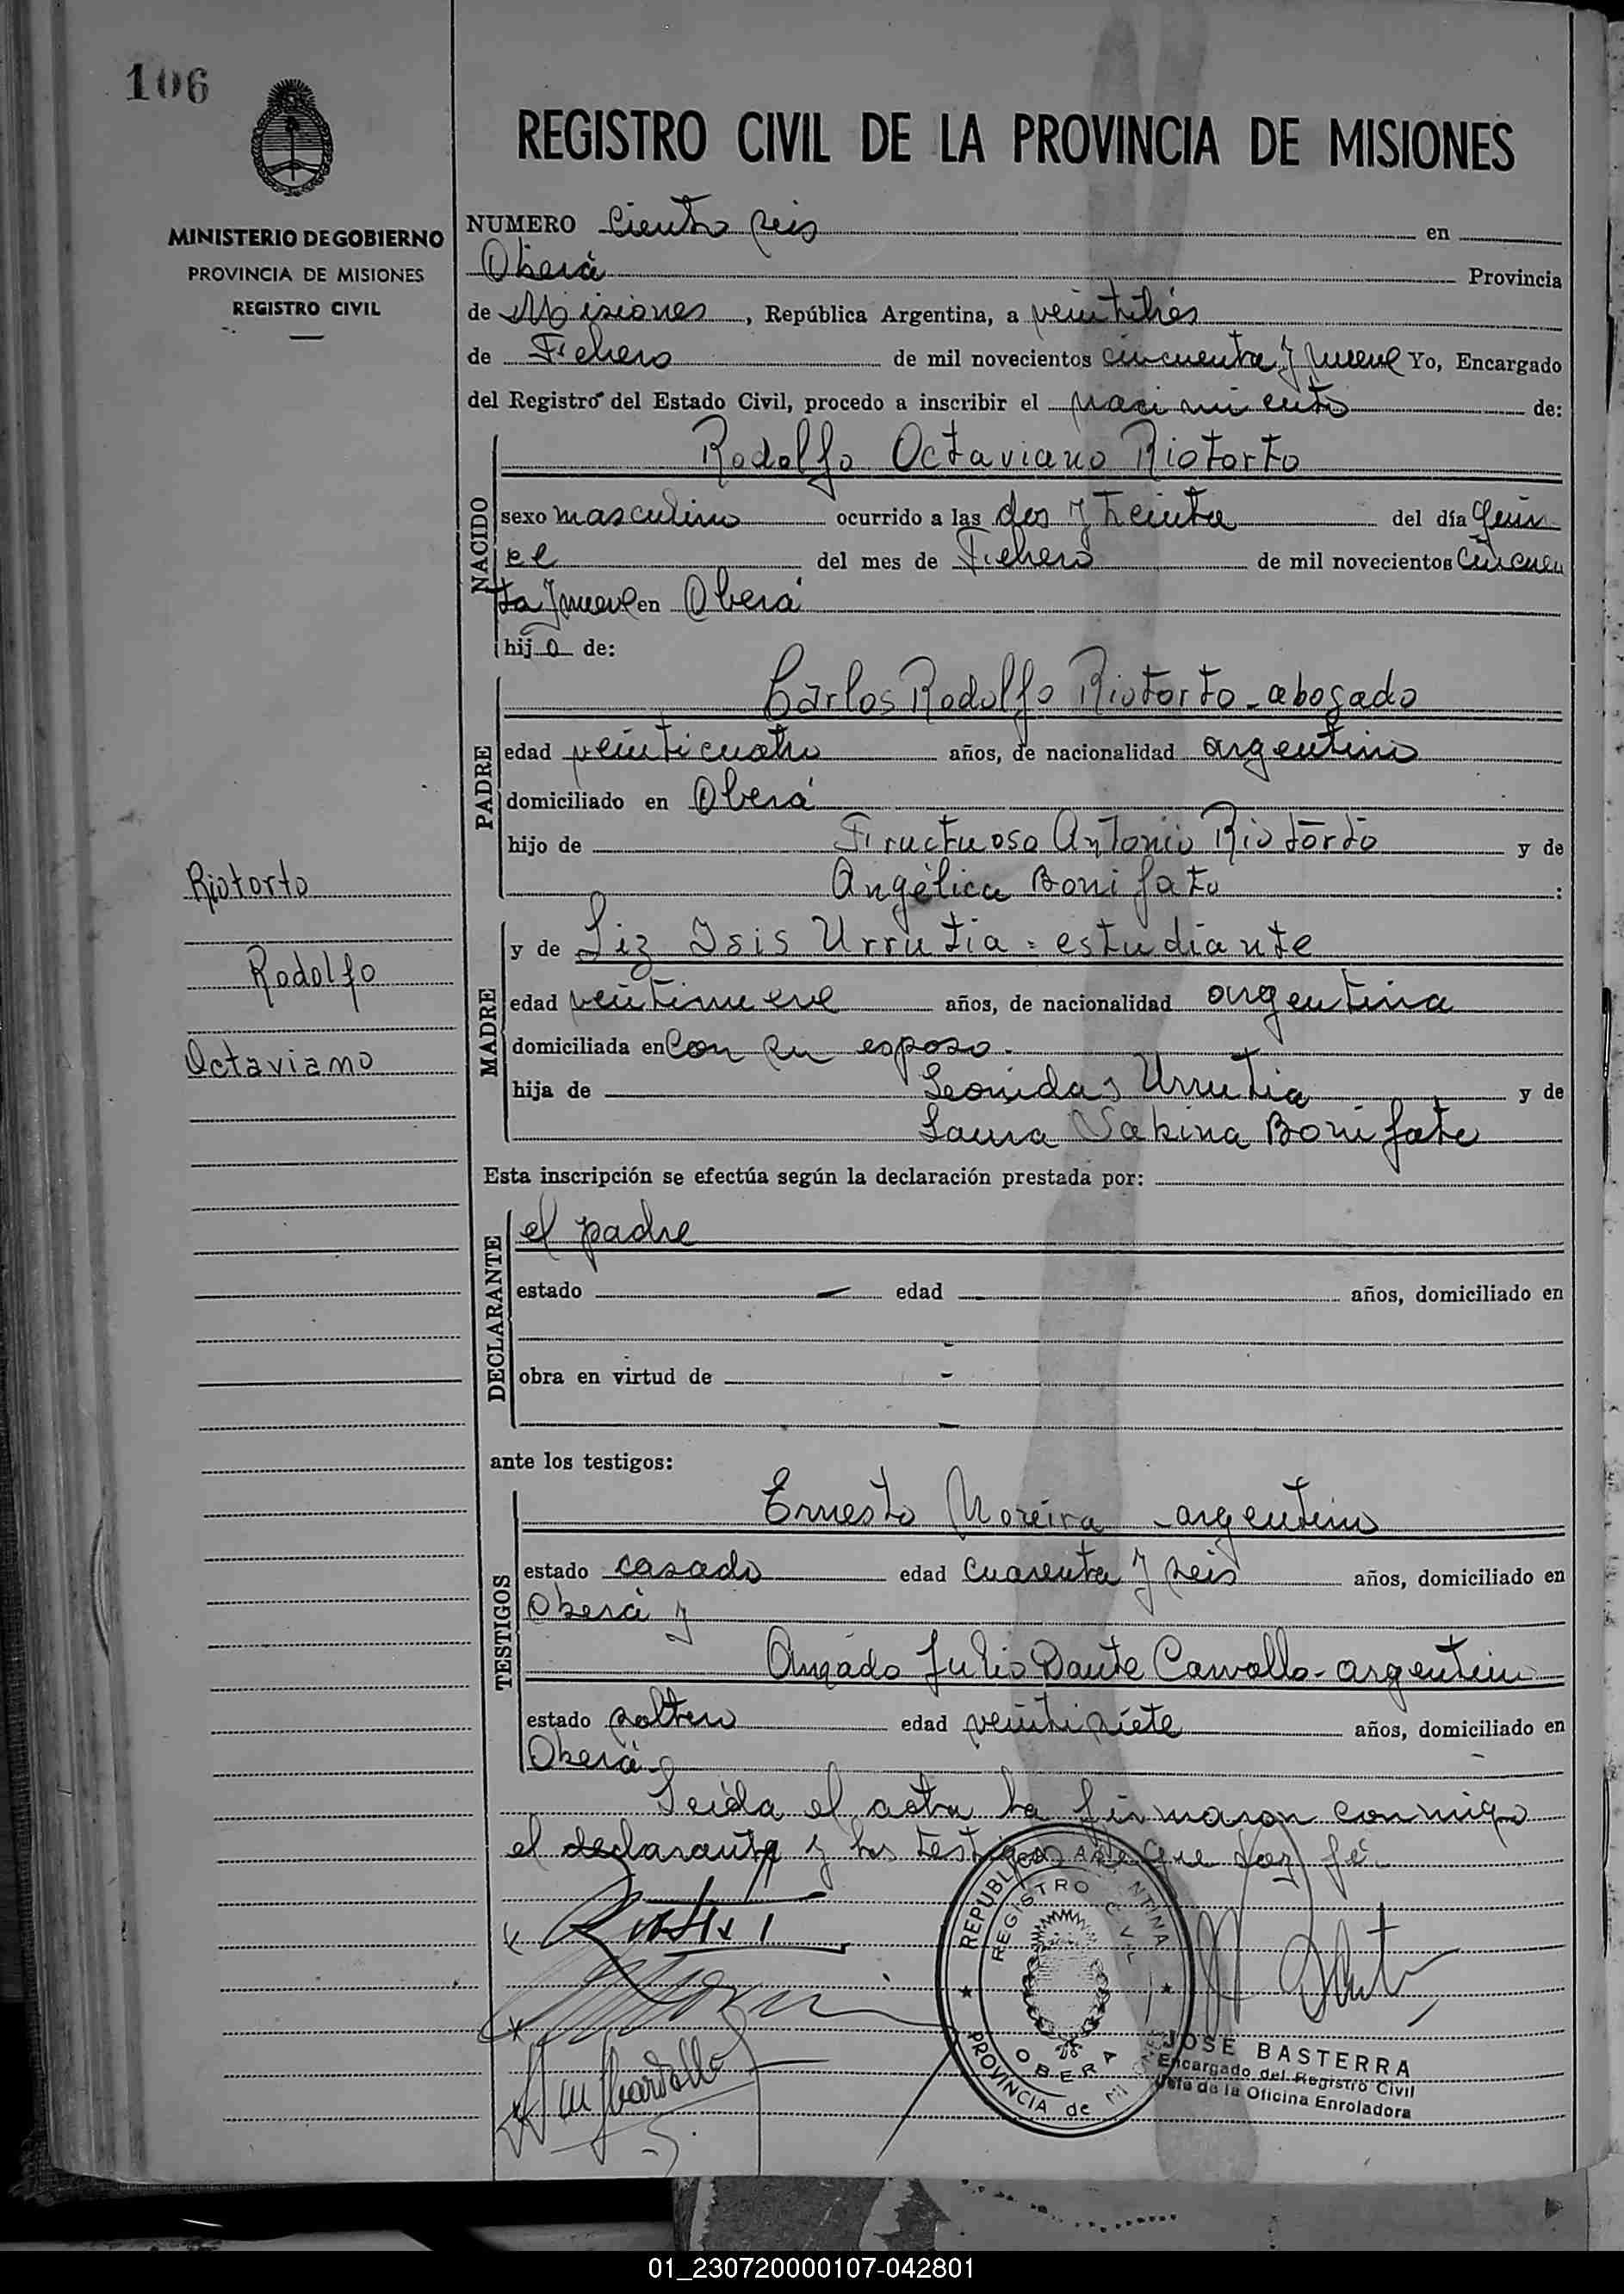 106
MINISTERIO DE GOBIERNO
PROVINCIA DE MISIONES
REGISTRO CIVIL
REGISTRO CIVIL DE LA PROVINCIA DE MISIONES
NUMERO Ciento seis en
Oberá Provincia
de Misiones, República Argentina, a veintitrés
de Febrero de mil novecientos cincuenta y nueve Yo, Encargado
del Registro del Estado Civil, procedo a inscribir el nacimiento de:
NACIDO
Rodolfo Octaviano Riotorto
sexo masculino ocurrido a las dos y treinta del día quin
ce del mes de Febrero de mil novecientos cincuen
ta y nueve en Oberá
hijo de:
PADRE
Carlos Rodolfo Riotorto - abogado
edad veinticuatro años, de nacionalidad argentino
domiciliado en Oberá
hijo de Fructuoso Antonio Riotorto y de
Angélica Bonifato :
MADRE
y de Liz Isis Urrutia = estudiante
edad veintinueve años, de nacionalidad argentina
domiciliada en Con su esposo.
hija de Leonidas Urrutia y de
Laura Sabina Bonifato
Riotorto
Rodolfo
Octaviano
Esta inscripción se efectúa según la declaración prestada por:
DECLARANTE
el padre
estado — edad — años, domiciliado en
-
obra en virtud de -
-
ante los testigos:
TESTIGOS
Ernesto Moreira - argentino
estado casado edad cuarenta y seis años, domiciliado en
Oberá y
Amado Julio Dante Carvallo - argentino
estado soltero edad veintisiete años, domiciliado en
Oberá.
Leída el acta la firmaron conmigo
el declarante y los testigos de que doy fé.
REPUBLICA ARGENTINA
REGISTRO CIVIL
OBERA
PROVINCIA de MISIONES
JOSE BASTERRA
Encargado del Registro Civil
Jefe de la Oficina Enroladora
01_230720000107-042801